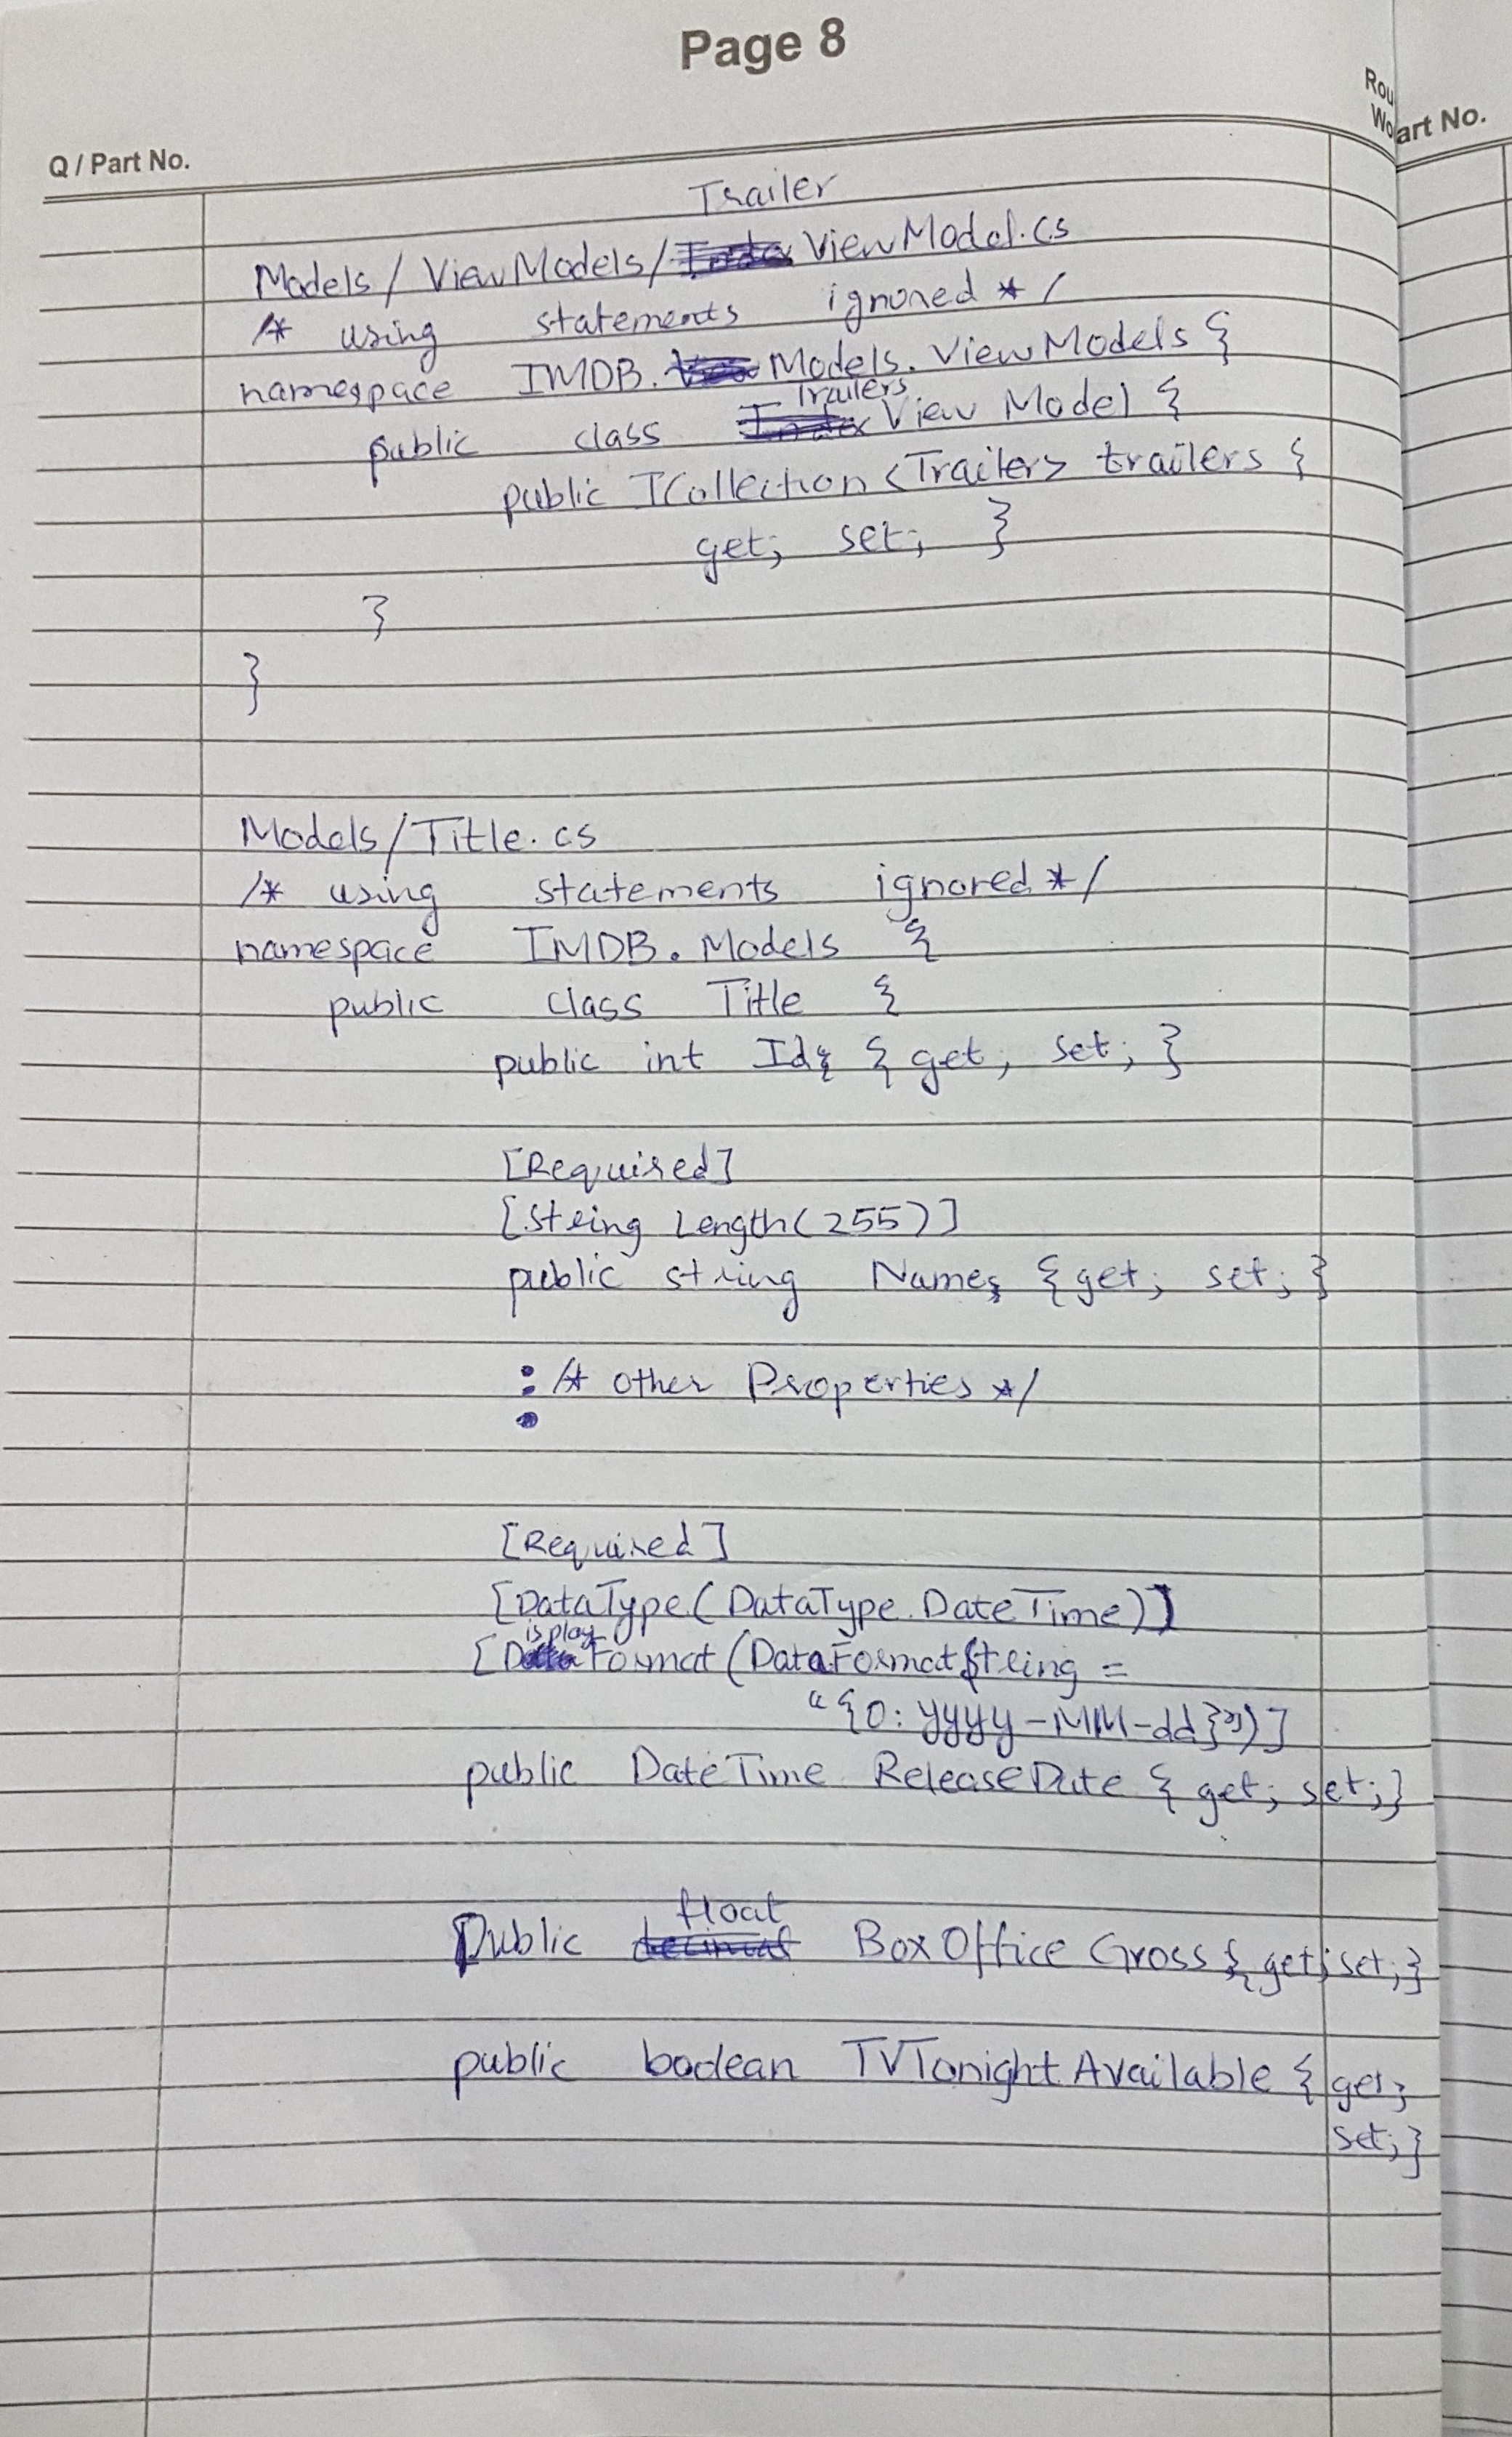 Page 8
Q / Part No.
Rou
Wo
art No.
Trailer
Models / ViewModels / ViewModel.cs
/* using statements ignored */
namespace IMDB. Models. ViewModels {
Trailers
public class View Model {
public ICollection <Trailer> trailers {
get; set; }
}
}
Models/Title.cs
/* using statements ignored */
namespace IMDB. Models {
public class Title {
public int Id { get; set; }
[Required]
[String Length(255)]
public string Name { get; set; }
: /* other Properties */
[Required]
[DataType(DataType.DateTime)]
[DisplayFormat(DataFormatString =
"{0: yyyy-MM-dd}")]
public DateTime ReleaseDate { get; set; }
float
Public decimal BoxOffice Gross { get; set; }
public boolean TVTonight Available { get;
set; }